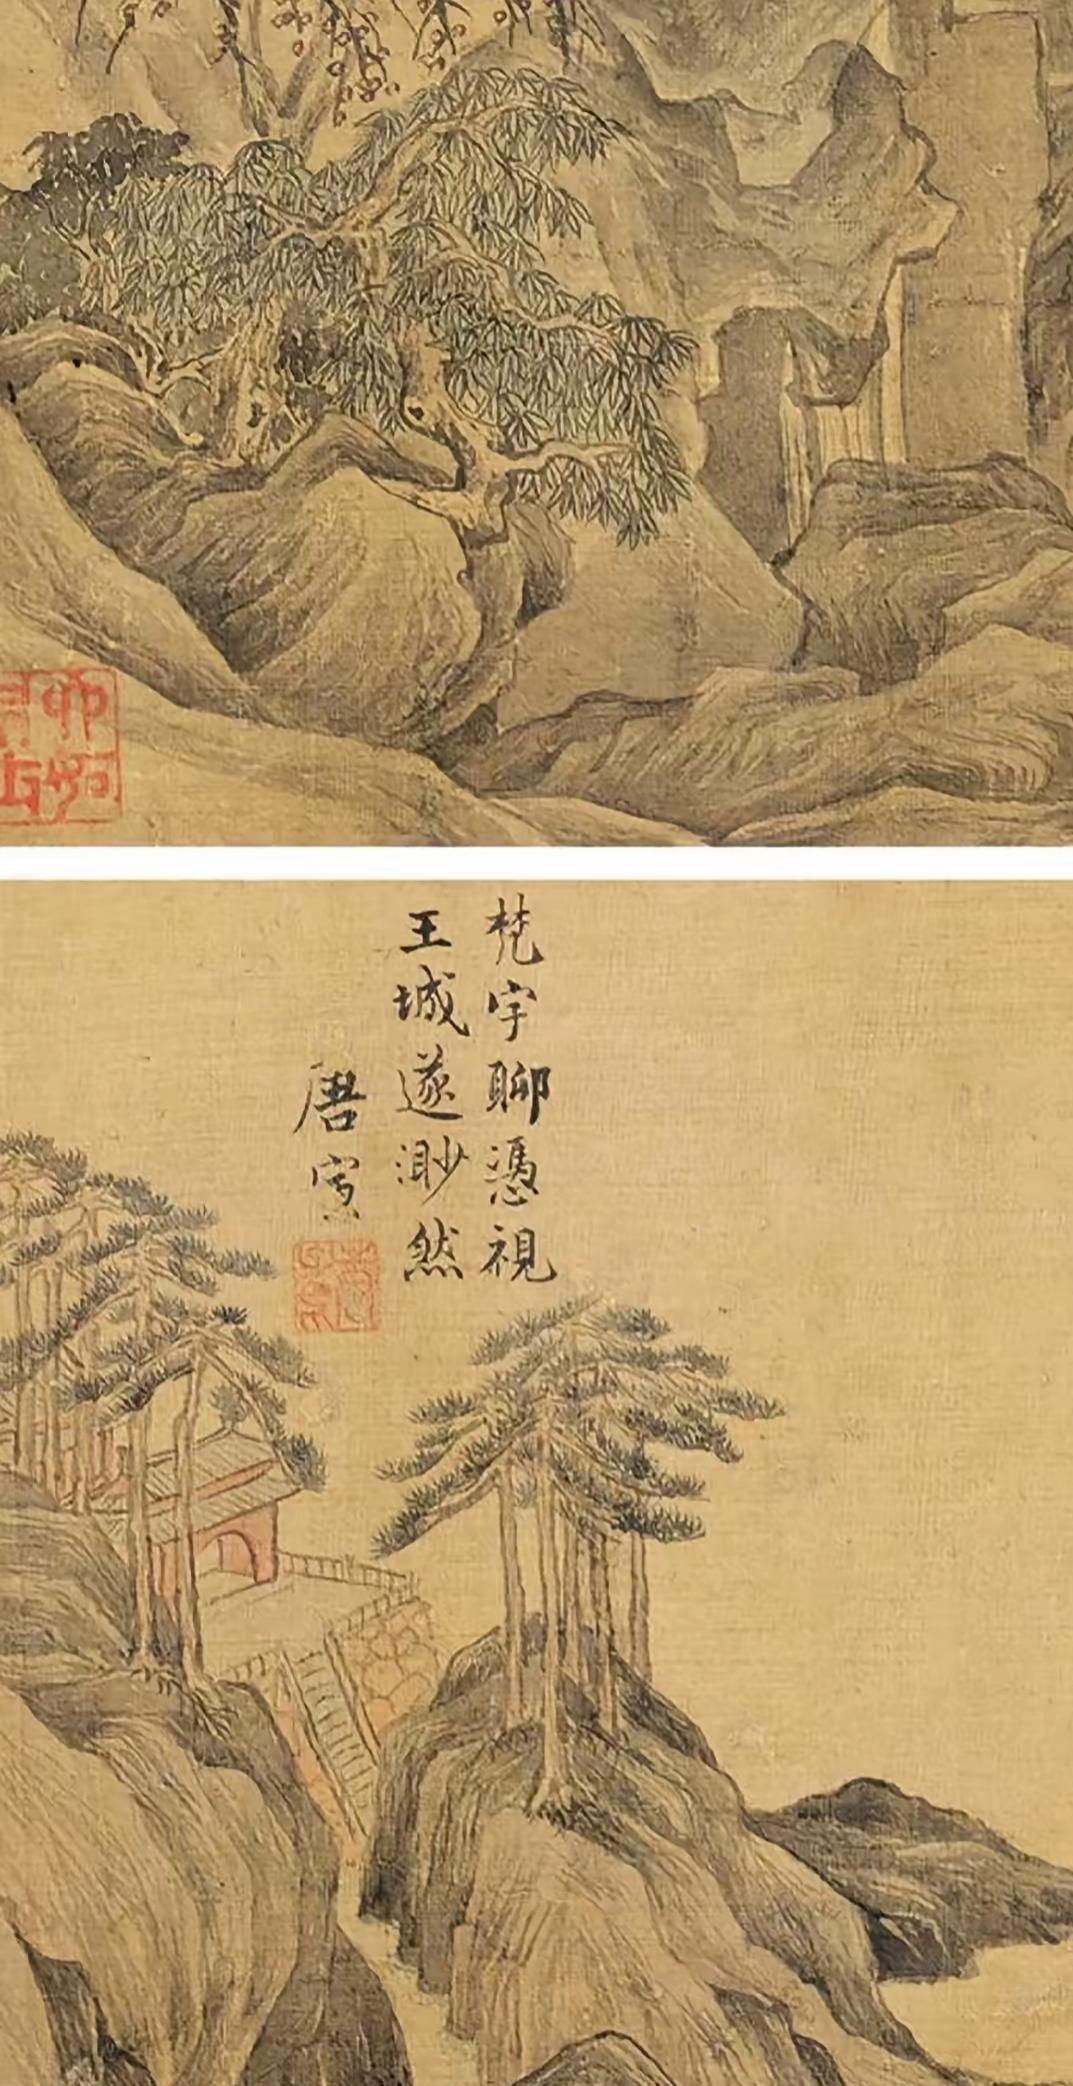 梵宇聊憑視
王城遂渺然
唐寅